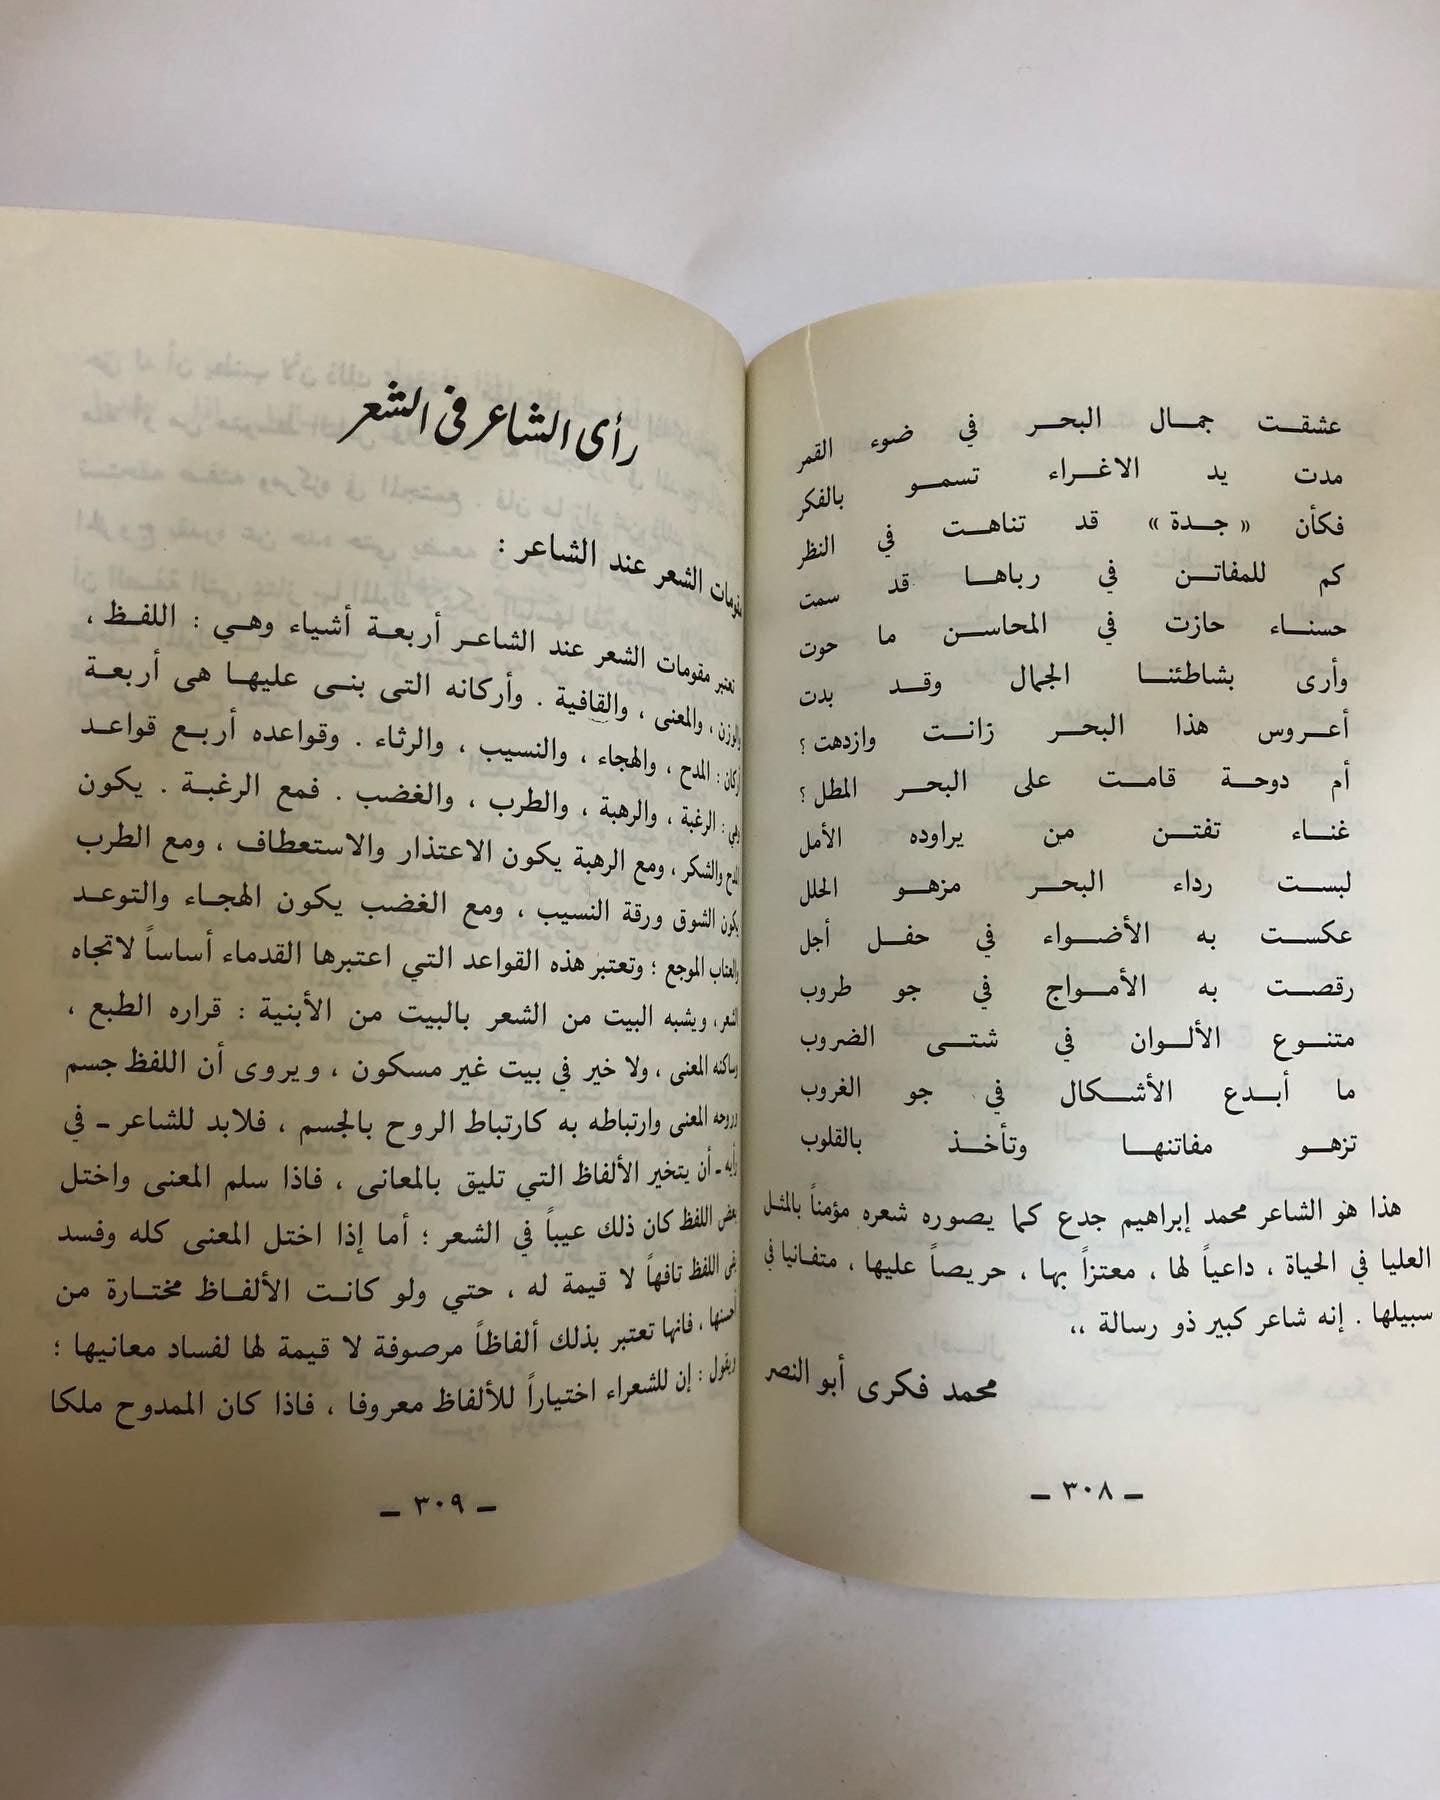 عشقت جمال البحر في ضوء القمر
مدت يد الاغراء تسمو بالفكر
فكأن « جدة » قد تناهت في النظر
كم للمفاتن في رباها قد سمت
حسناء حازت في المحاسن ما حوت
وأرى بشاطئنا الجمال وقد بدت
أعروس هذا البحر زانت وازدهت ؟
أم دوحة قامت على البحر المطل ؟
غناء تفتن من يراوده الأمل
لبست رداء البحر مزهو الحلل
عكست به الأضواء في حفل أجل
رقصت به الأمواج في جو طروب
متنوع الألوان في شتى الضروب
ما أبدع الأشكال في جو الغروب
تزهو مفاتنها وتأخذ بالقلوب
هذا هو الشاعر محمد إبراهيم جدع كما يصوره شعره مؤمناً بالمثل
العليا في الحياة ، داعياً لها ، معتزاً بها ، حريصاً عليها ، متفانيا في
سبيلها . إنه شاعر كبير ذو رسالة ،،
محمد فكرى أبو النصر
ــ ٣٠٨ ــ
رأى الشاعر فى الشعر
مقومات الشعر عند الشاعر :
تعتبر مقومات الشعر عند الشاعر أربعة أشياء وهي : اللفظ ،
والوزن ، والمعنى ، والقافية . وأركانه التى بنى عليها هى أربعة
أركان : المدح ، والهجاء ، والنسيب ، والرثاء . وقواعده أربع قواعد
وهي : الرغبة ، والرهبة ، والطرب ، والغضب . فمع الرغبة . يكون
المدح والشكر ، ومع الرهبة يكون الاعتذار والاستعطاف ، ومع الطرب
يكون الشوق ورقة النسيب ، ومع الغضب يكون الهجاء والتوعد
والعتاب الموجع ؛ وتعتبر هذه القواعد التي اعتبرها القدماء أساساً لاتجاه
الشعر ، ويشبه البيت من الشعر بالبيت من الأبنية : قراره الطبع ،
وساكنه المعنى ، ولا خير في بيت غير مسكون ، ويروى أن اللفظ جسم
وروحه المعنى وارتباطه به كارتباط الروح بالجسم ، فلابد للشاعر ــ في
رأيه ــ أن يتخير الألفاظ التي تليق بالمعانى ، فاذا سلم المعنى واختل
بعض اللفظ كان ذلك عيباً في الشعر ؛ أما إذا اختل المعنى كله وفسد
بقى اللفظ تافهاً لا قيمة له ، حتي ولو كانت الألفاظ مختارة من
أحسنها ، فانها تعتبر بذلك ألفاظاً مرصوفة لا قيمة لها لفساد معانيها ؛
ويقول : إن للشعراء اختياراً للألفاظ معروفا ، فاذا كان الممدوح ملكا
ــ ٣٠٩ ــ